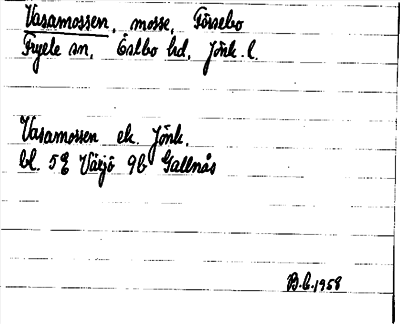 Vasamossen, mosse, Försebo
Fryele sn, Östbo hd, Jönk. l.
Vasamossen ek. Jönk.
bl. 5E Växjö 9b Gallnås
B.C. 1958